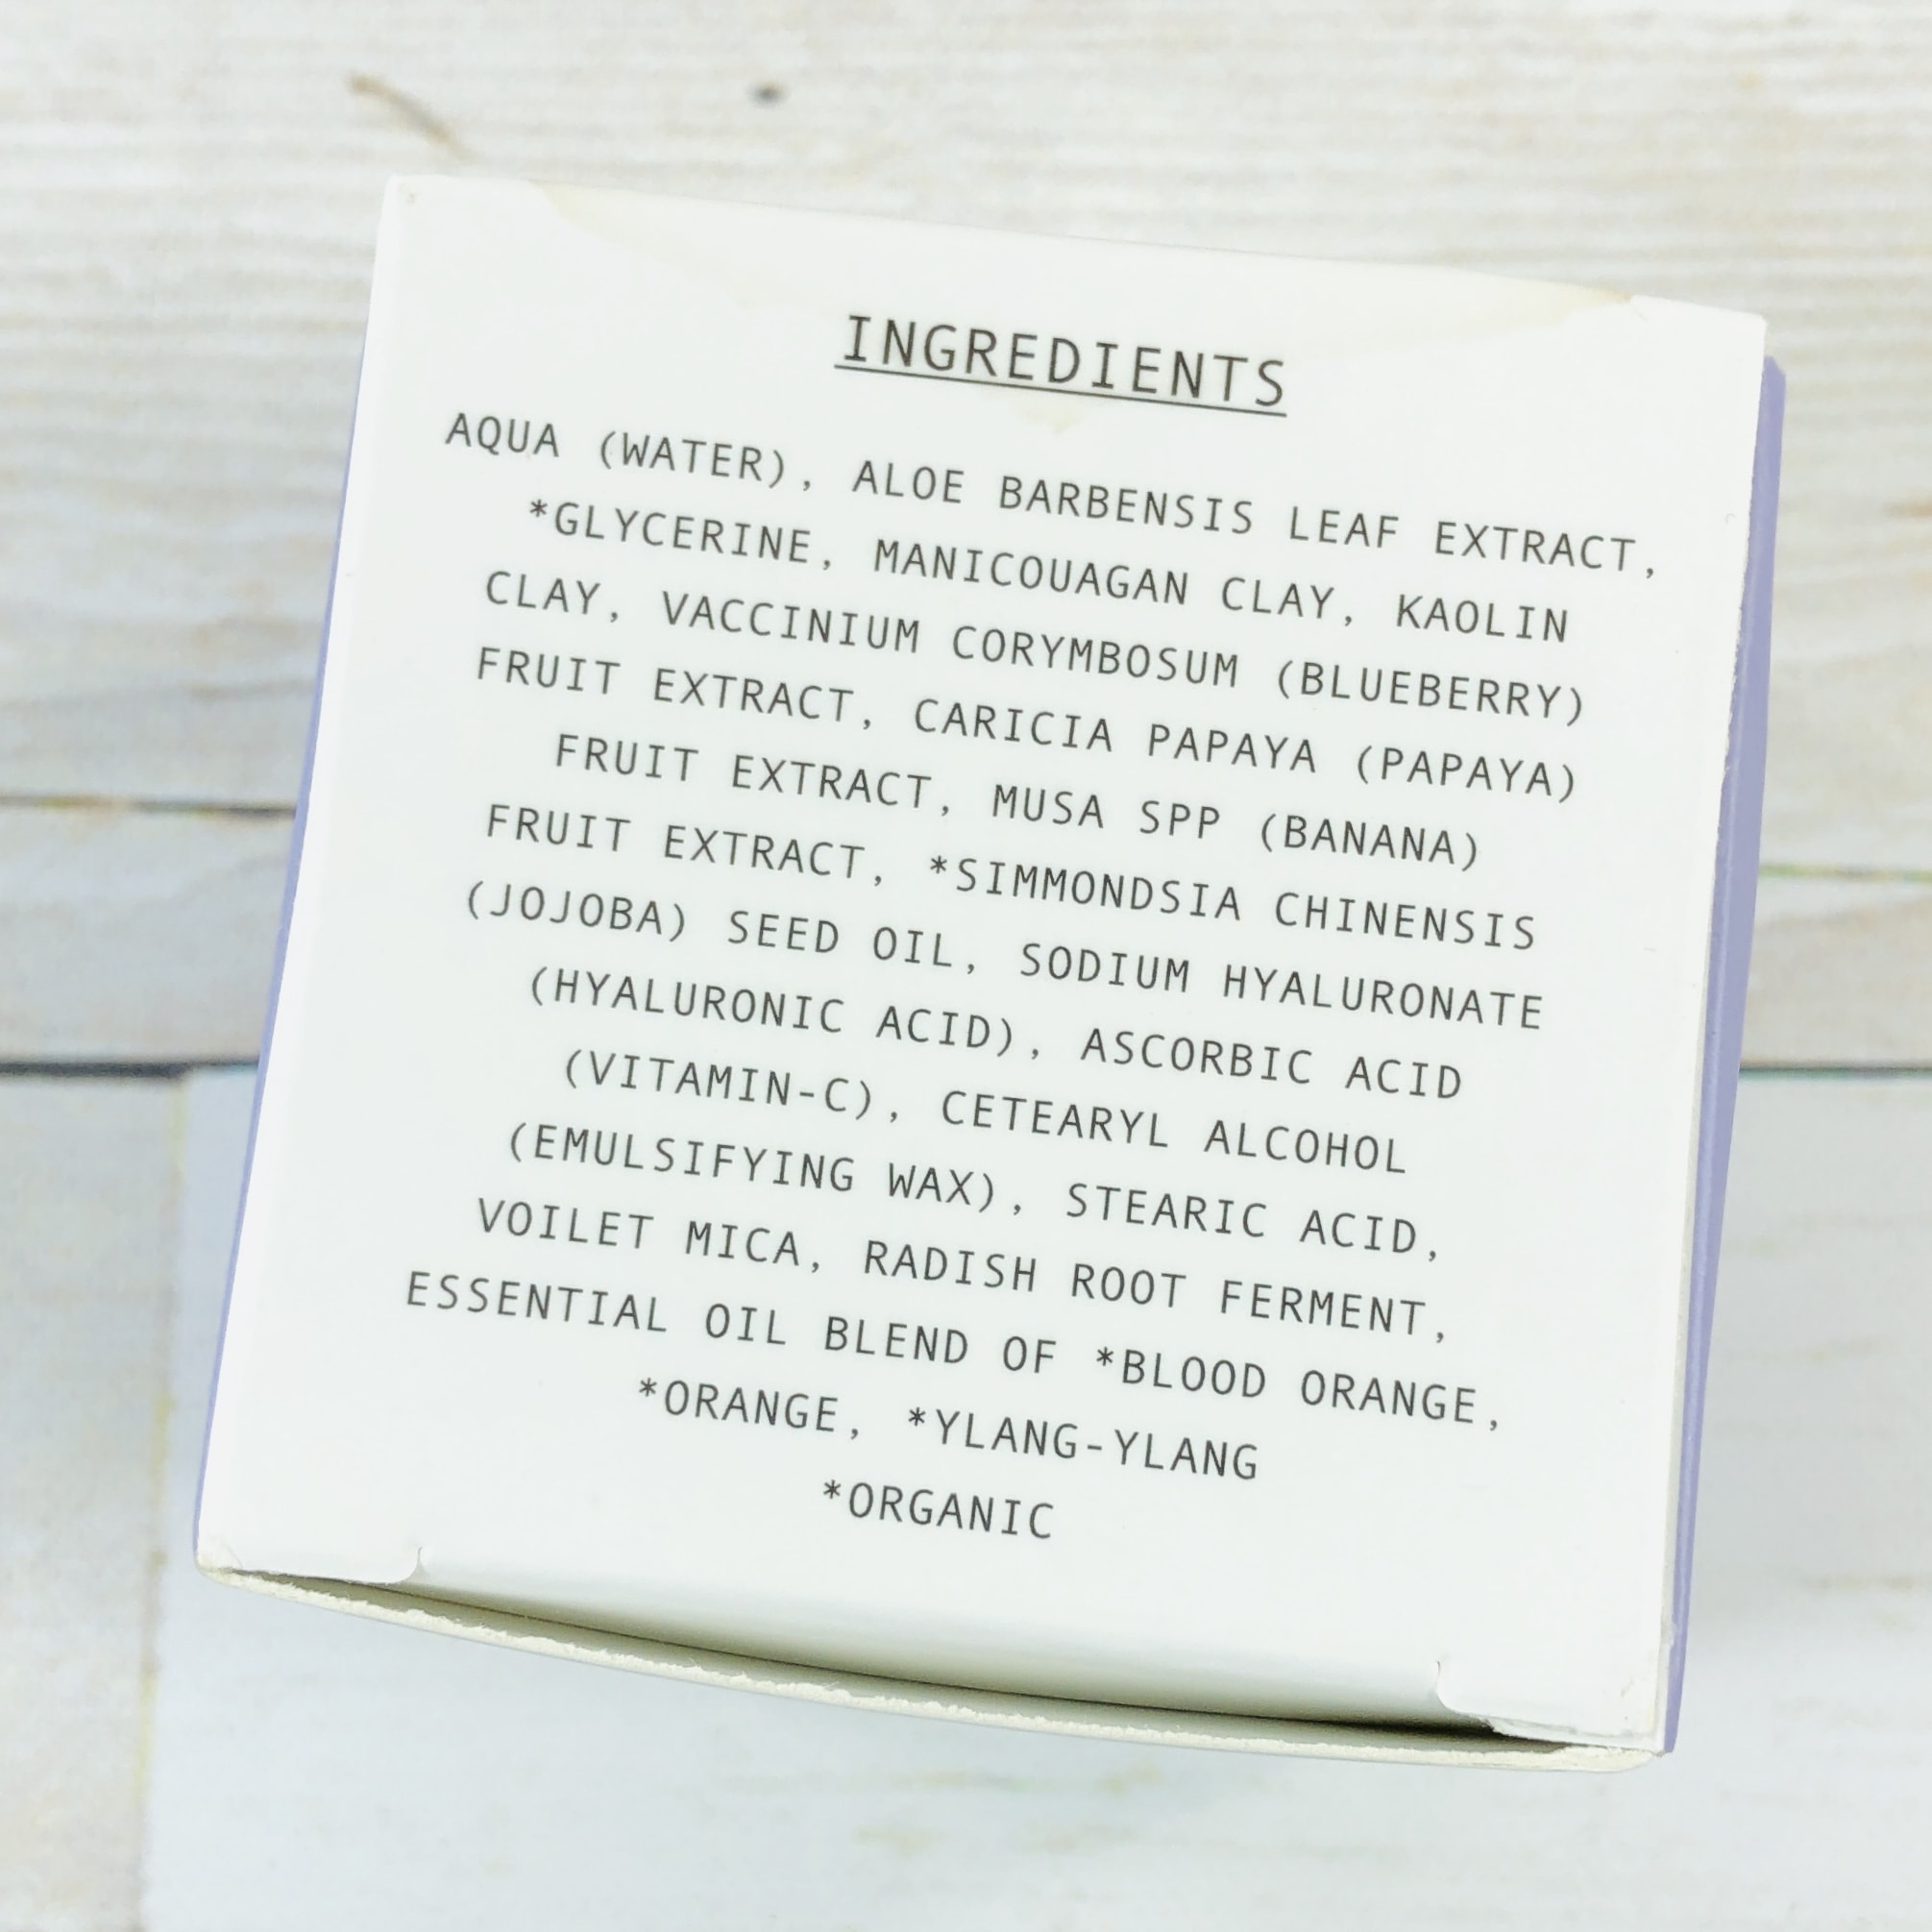 INGREDIENTS
AQUA (WATER), ALOE BARBENSIS LEAF EXTRACT,
*GLYCERINE, MANICOUAGAN CLAY, KAOLIN
CLAY, VACCINIUM CORYMBOSUM (BLUEBERRY)
FRUIT EXTRACT, CARICIA PAPAYA (PAPAYA)
FRUIT EXTRACT, MUSA SPP (BANANA)
FRUIT EXTRACT, *SIMMONDSIA CHINENSIS
(JOJOBA) SEED OIL, SODIUM HYALURONATE
(HYALURONIC ACID), ASCORBIC ACID
(VITAMIN-C), CETEARYL ALCOHOL
(EMULSIFYING WAX), STEARIC ACID,
VOILET MICA, RADISH ROOT FERMENT,
ESSENTIAL OIL BLEND OF *BLOOD ORANGE,
*ORANGE, *YLANG-YLANG
*ORGANIC